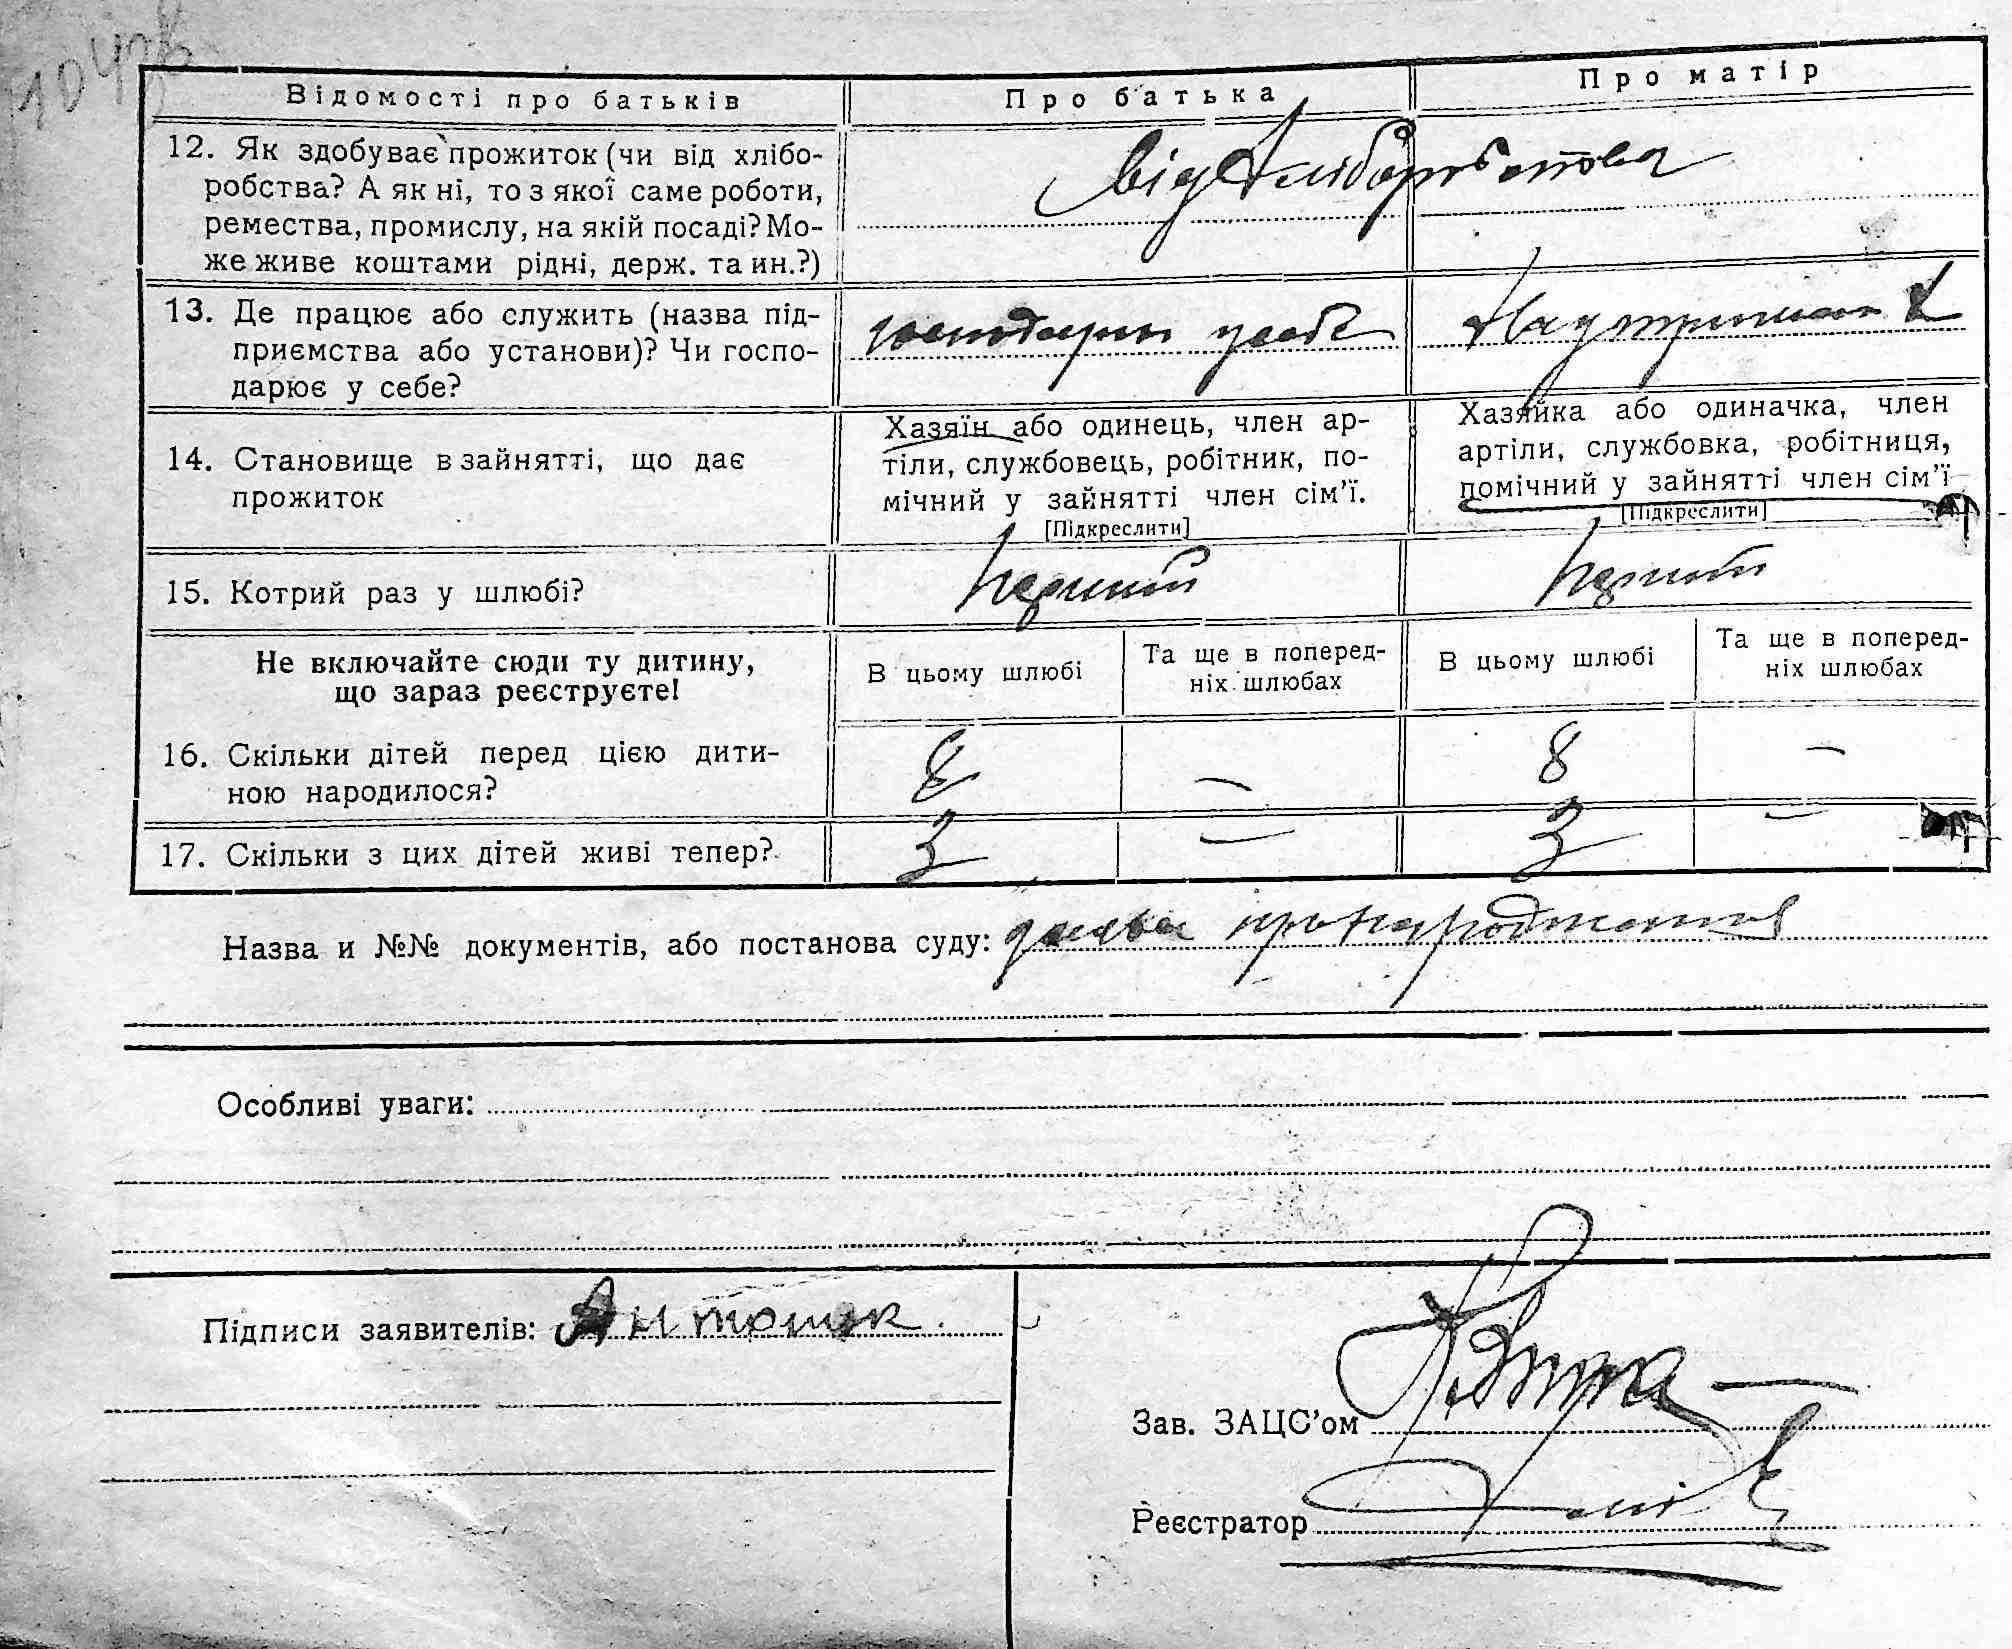 Відомості про батьків
Про батька
Про матір
12. Як здобуває прожиток (чи від хлібо-
робства? А як ні, то з якої саме роботи,
ремества, промислу, на якій посаді? Мо-
же живе коштами рідні, держ. та ин.?)
від хліборобства
13. Де працює або служить (назва під-
приємства або установи)? Чи госпо-
дарює у себе?
господарює у себе
14. Становище в зайнятті, що дає
прожиток
Хазяїн або одинець, член ар-
тіли, службовець, робітник, по-
мічний у зайнятті член сім'ї.
[Підкреслити]
Хазяйка або одиначка, член
артіли, службовка, робітниця,
помічний у зайнятті член сім'ї
[Підкреслити]
15. Котрий раз у шлюбі?
перший
перший
Не включайте сюди ту дитину,
що зараз реєструєте!
В цьому шлюбі
Та ще в поперед-
ніх шлюбах
В цьому шлюбі
Та ще в поперед-
ніх шлюбах
16. Скільки дітей перед цією дити-
ною народилося?
8 — 8 —
17. Скільки з цих дітей живі тепер?
3 — 3 —
Назва и №№ документів, або постанова суду: заява про народження
Особливі уваги:
Підписи заявителів: Антонюк.
Зав. ЗАЦС'ом
Реєстратор